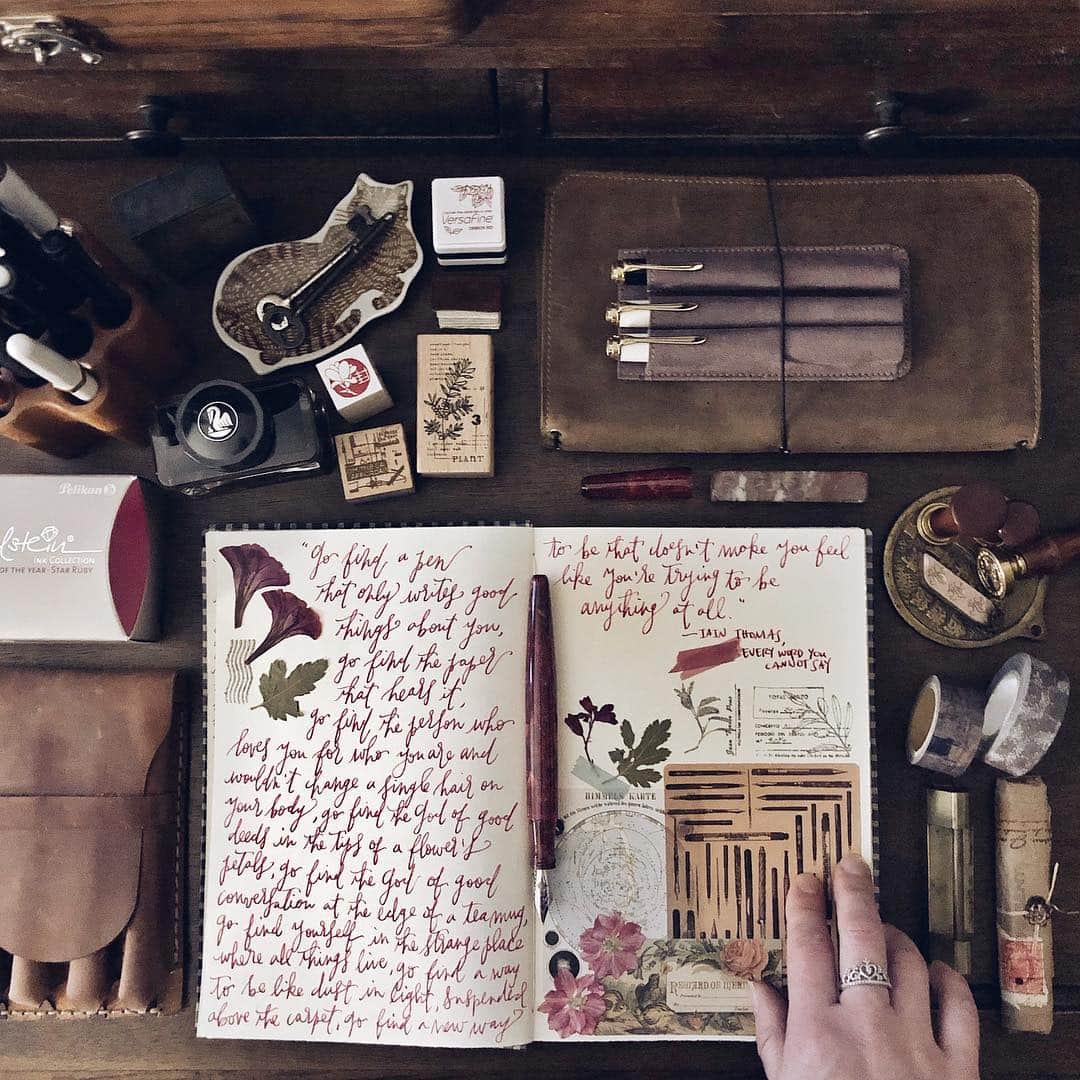 VersaFine
3
PLANT
Pelikan
INK COLLECTION
OF THE YEAR-STAR RUBY
"Go find a pen
that only writes good
things about you,
go find the paper
that hears it,
go find the person who
loves you for who you are and
wouldn't change a single hair on
your body, go find the God of good
deeds in the tips of a flower's
petals, go find the God of good
conversation at the edge of a tea mug,
go find yourself in the strange place
where all things live, go find a way
to be like dust in light, suspended
above the carpet, go find a new way
to be that doesn't make you feel
like you're trying to be
anything at all."
—IAIN THOMAS,
EVERY WORD YOU
CANNOT SAY
HIMMELS KARTE
REWARD OF MERIT